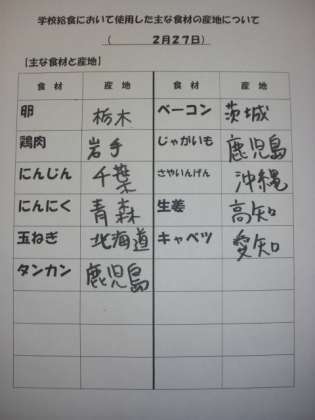 学校給食において使用した主な食材の産地について
（ 2月27日）
【主な食材と産地】
食 材 産 地 食 材 産 地
卵 栃木 ベーコン 茨城
鶏肉 岩手 じゃがいも 鹿児島
にんじん 千葉 さやいんげん 沖縄
にんにく 青森 生姜 高知
玉ねぎ 北海道 キャベツ 愛知
タンカン 鹿児島